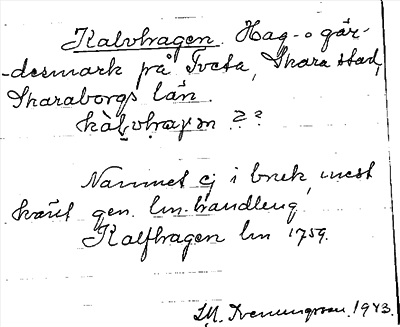 Kalvhagen. Hag- o gär-
-desmark på Tveta, Skara stad,
Skaraborgs län.
kàlvhaɣən ??
Namnet ej i bruk, mest
känt gen. lm-handling.
Kalfhagen lm 1759.
1943.